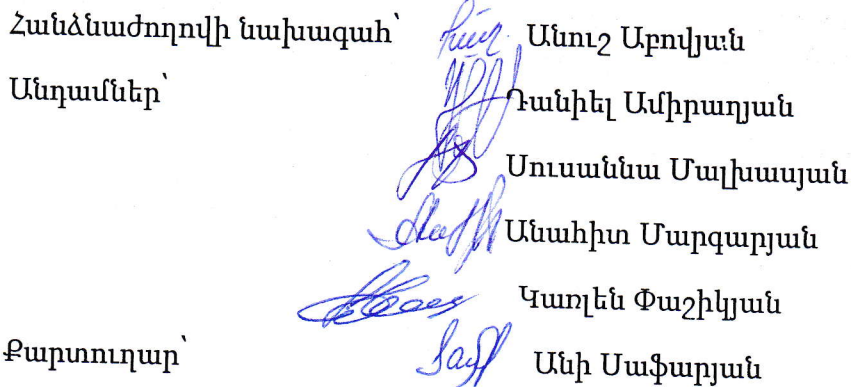 Հանձնաժողովի նախագահ՝ Անուշ Աբովյան
Անդամներ՝ Դանիել Ամիրաղյան
Սուսաննա Մալխասյան
Անահիտ Մարգարյան
Կառլեն Փաշիկյան
Քարտուղար՝ Անի Սաֆարյան